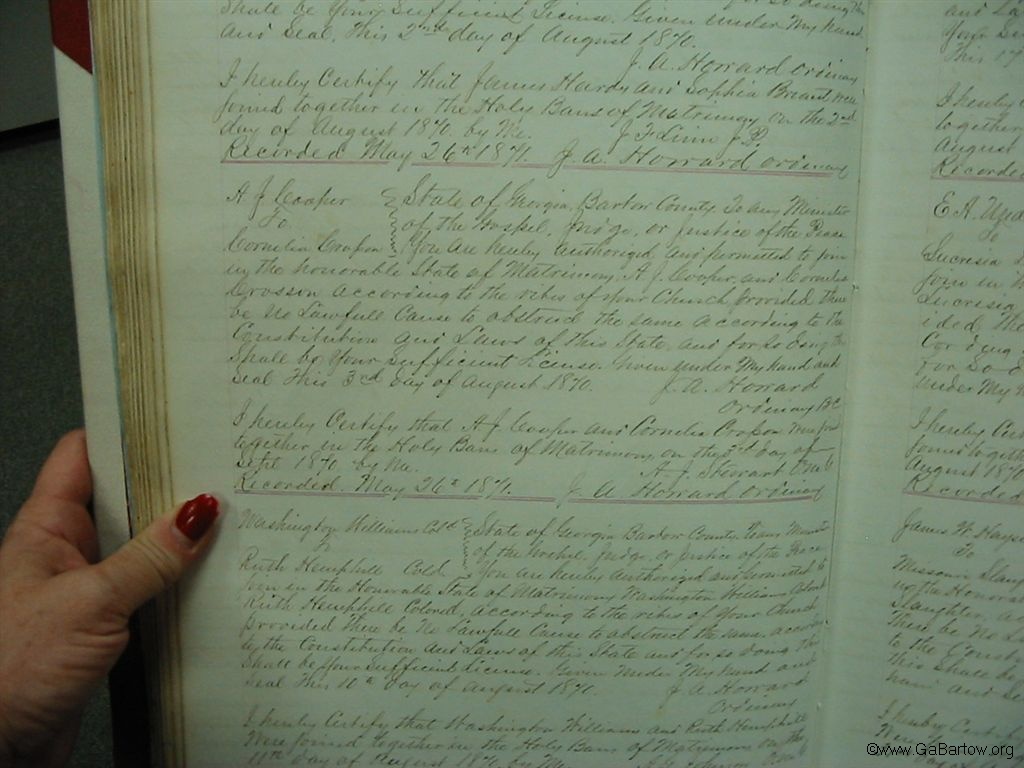 Shall be Your Sufficient License. Given under My hand
and Seal. This 2nd day of August 1870.
J. A. Howard Ordinary
I hereby Certify that James Hardy and Sophia Breant were
joined together in the Holy Bans of Matrimony on the 2nd
day of August 1870. by Me. J F Linn J.P.
Recorded May 26th 1871. J. A. Howard Ordinary
A J Cooper
To
Cornelia Crosson
State of Georgia, Bartow County. To any Minister
of the Gospel, Judge, or Justice of the Peace
You are hereby authorized and permitted to join
in the honorable State of Matrimony A J Cooper, and Cornelia
Crosson according to the rites of your Church provided there
be no Lawfull Cause to obstruct the same according to the
Constitution and Laws of this State, and for so doing this
Shall be Your Sufficient License. Given under My hand and
Seal This 3rd day of August 1870. J. A. Howard
Ordinary BC
I hereby Certify that A J Cooper and Cornelia Crosson were
together in the Holy Bans of Matrimony, on the 3rd day of
Sept 1870 by Me. A. J. Stewart
Recorded. May 26th 1871. J. A Howard Ordinary
Washington Williams Cold
To
Ruth Hemphill Cold
State of Georgia Bartow County. To any Minister
of the Gospel, Judge, or Justice of the Peace
You are hereby authorized and permitted to
join in the Honorable State of Matrimony Washington Williams Colored
Ruth Hemphill Colored, according to the rites of Your Church
provided there be No Lawfull Cause to obstruct the same. according
to the Constitution and Laws of this State and for so doing this
Shall be Your Sufficient License. Given Under My hand and
Seal This 10th day of August 1870. J A. Howard
Ordinary
I hereby Certify that Washington Williams and Ruth Hemphill
Were joined together in the Holy Bans of Matrimony on the
11th day of August 1870 by Me
and
This 17
I hereby
together
August
Recorded
E. A.
To
Lucresia
join in
Lucresia
ided
for so
under My
I hereby Cert
joined togeth
August 1870
Recorded
James W. Hays
To
Missouri Slaug
Slaughter,
there be no L
to the Const
this Shall be
hand and Se
I hereby Certify
Were
day of
©www.GaBartow.org